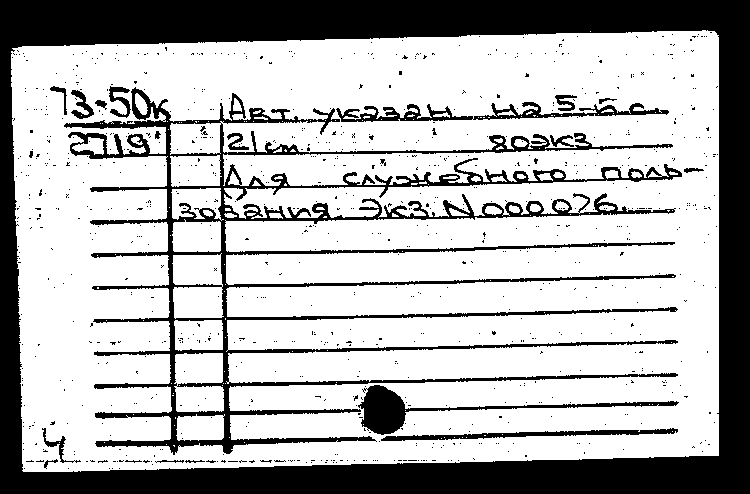 73-50к Авт. указан на 5-й с.
2719 21 см. 80экз.
Для служебного поль-
зования. Экз. N 000076.
4